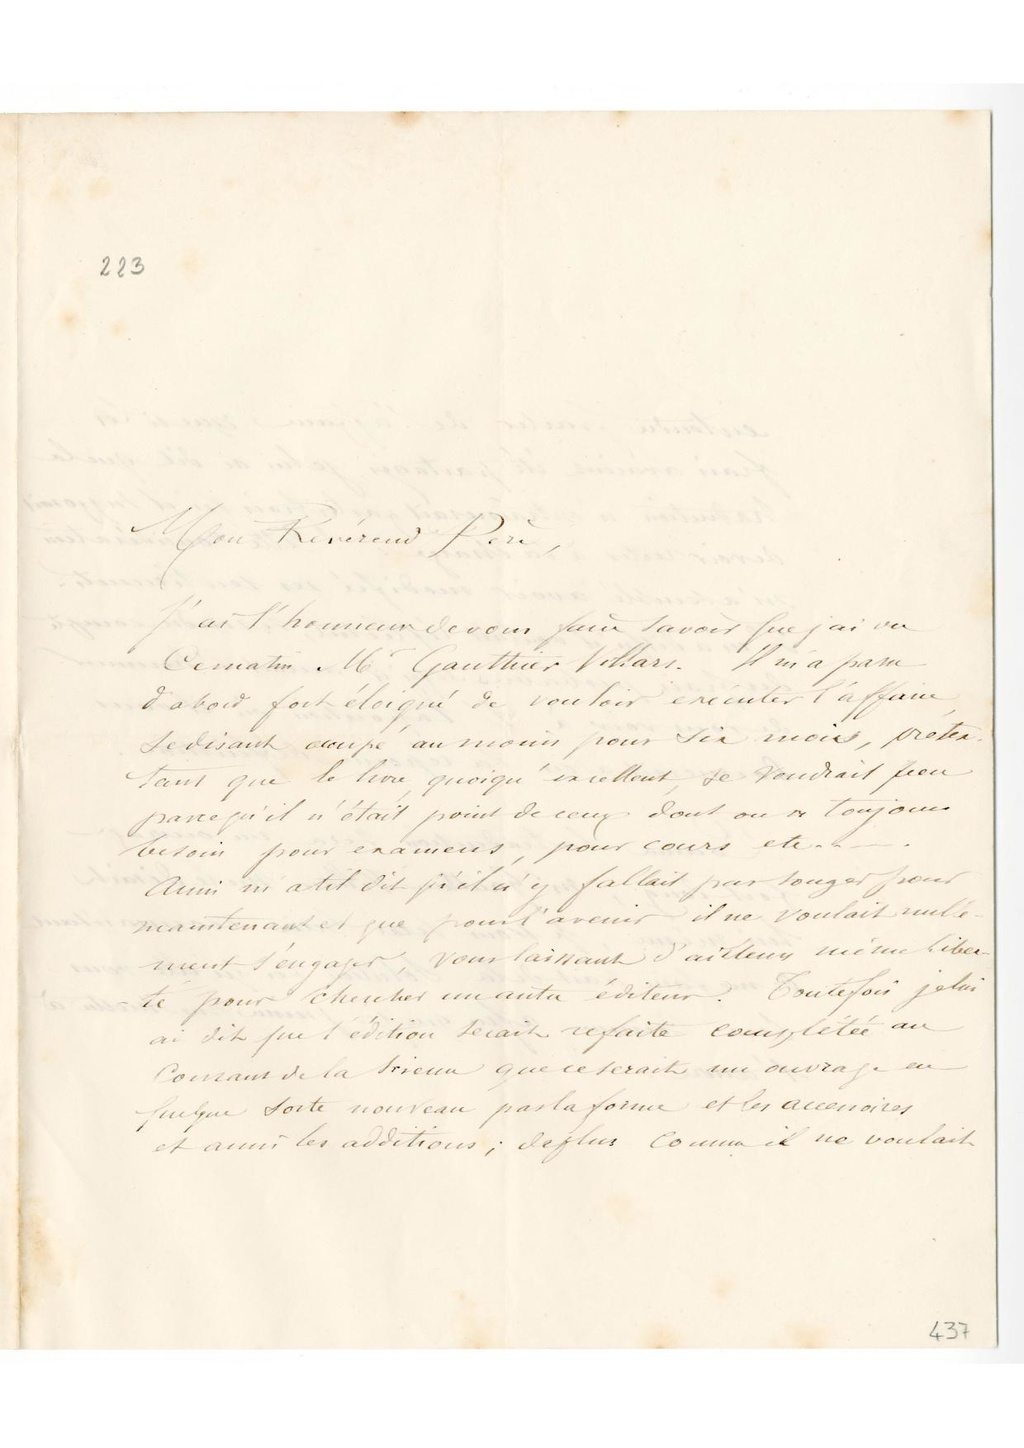 223
Mon Révérend Père,
J'ai l'honneur de vous faire savoir que j'ai vu
Ce matin Mr Gauthier Villars. Il m'a paru
d'abord fort éloigné de vouloir exécuter l'affaire,
se disant occupé au moins pour six mois, prétex-
tant que le livre, quoiqu'excellent, se vendrait peu
parce qu'il n'était point de ceux dont on a toujours
besoin pour examens, pour cours etc.....
Aussi m'a til dit qu'il n'y fallait pas songer pour
maintenant et que pour l'avenir il ne voulait nulle-
ment s'engager, vous laissant d'ailleurs même liber-
-té pour chercher un autre éditeur. Toutefois je lui
ai dit que l'édition serait refaite complétée au
Courant de la Science que ce serait un ouvrage en
quelque sorte nouveau par la forme et les accessoires
et aussi les additions; de plus comme il ne voulait
437